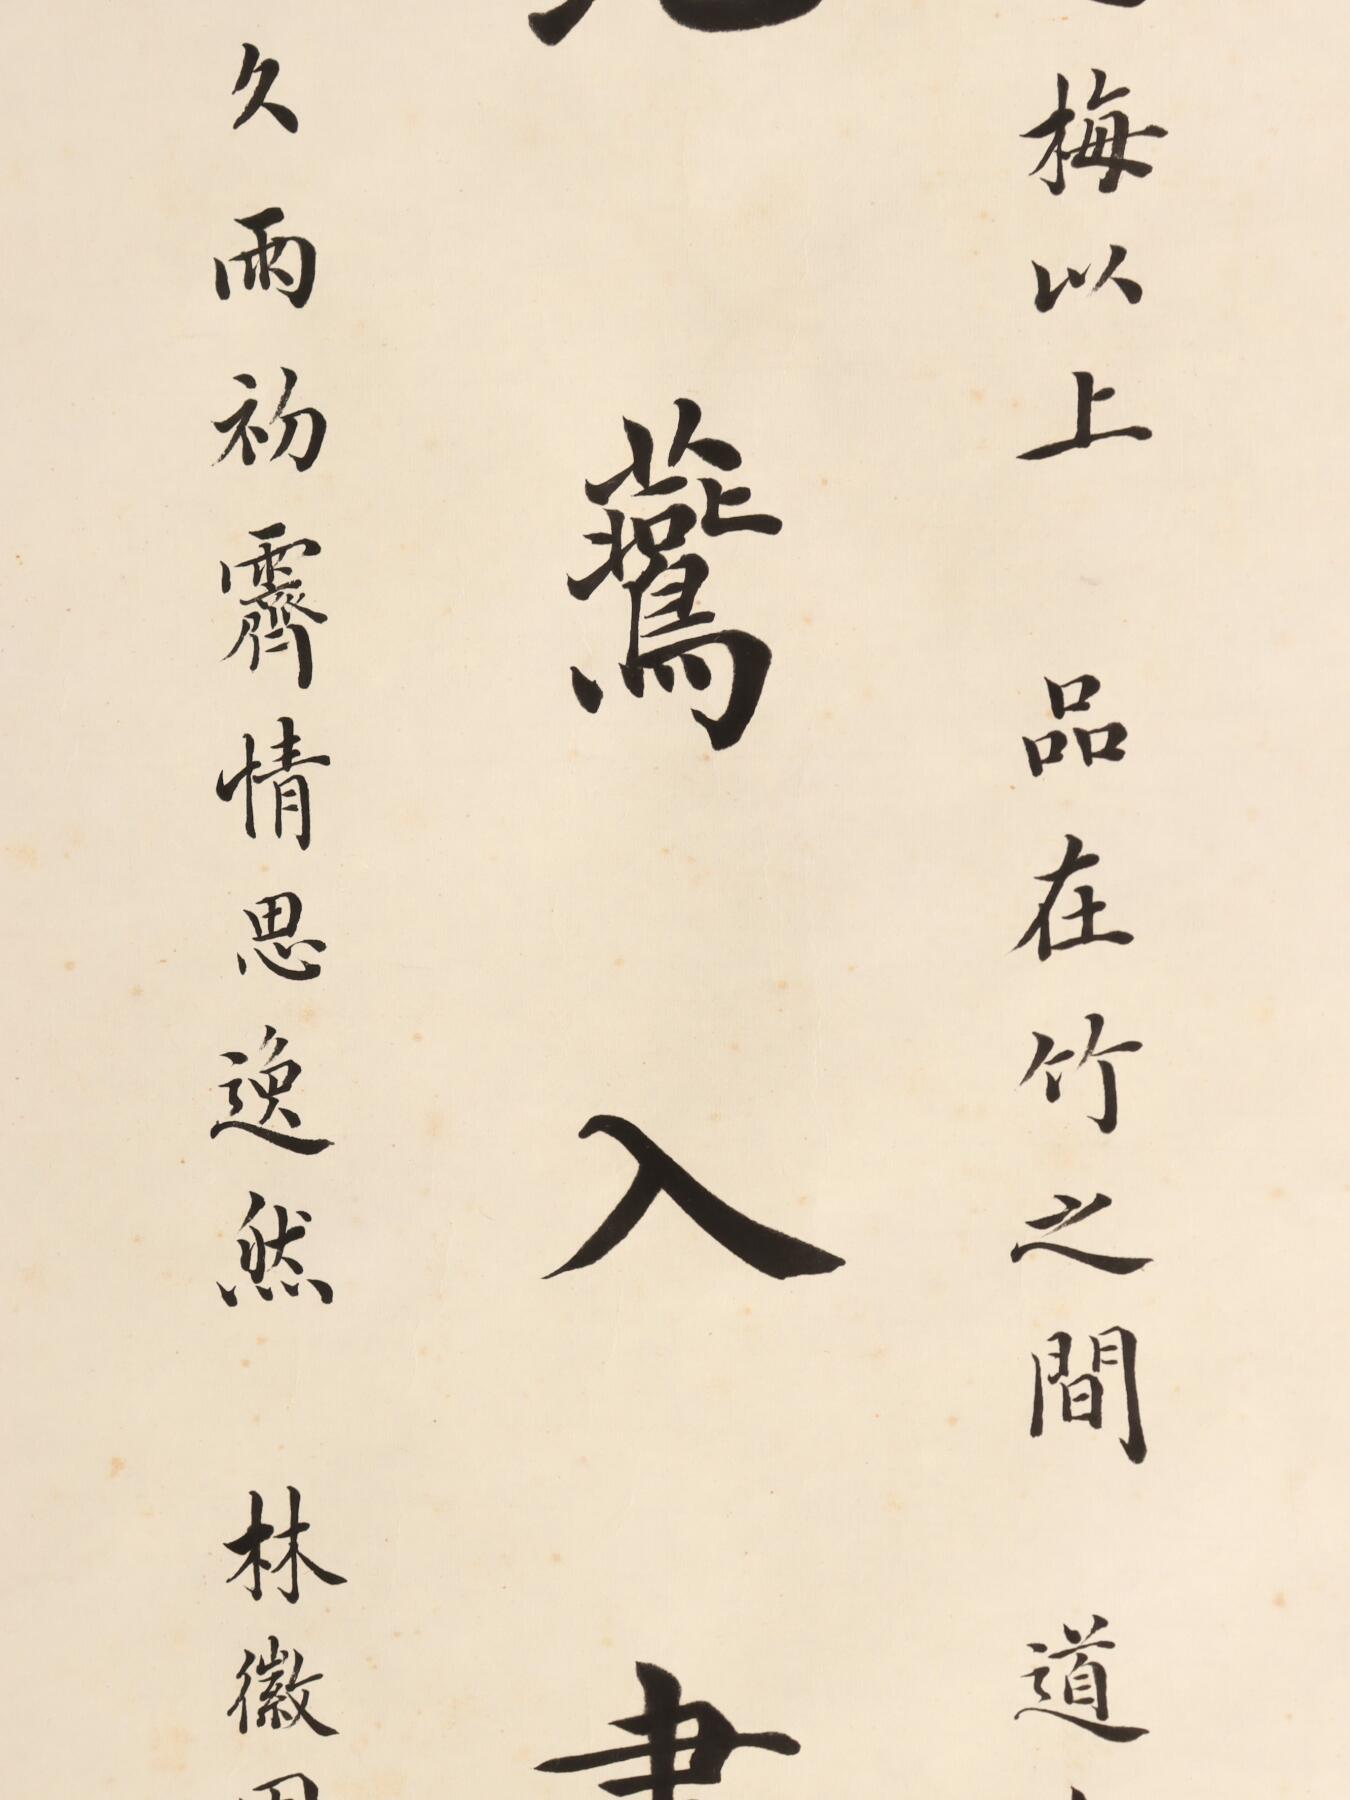 梅以上 品在竹之間 道
鷰入書
久雨初霽情思逸然 林徽